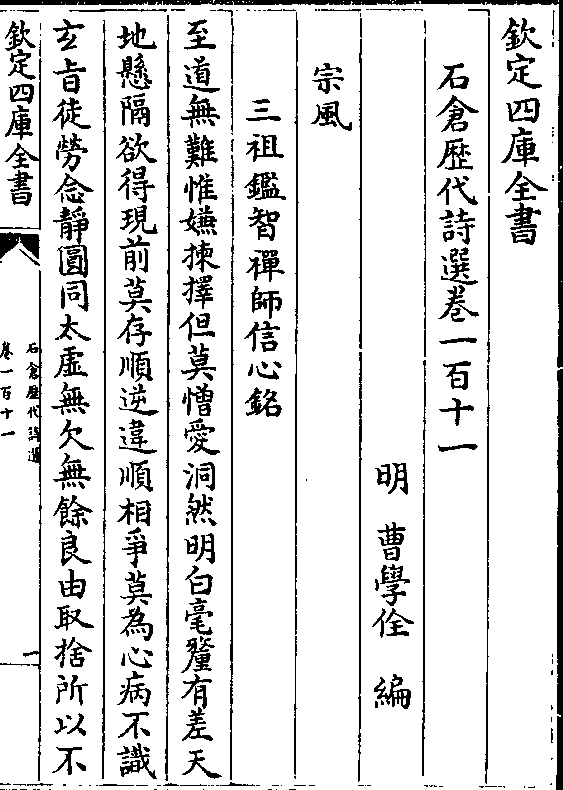 欽定四庫全書
石倉歴代詩選卷一百十一
明 曹學佺 編
宗風
三祖鑑智禪師信心銘
至道無難惟嫌揀擇但莫憎愛洞然明白毫釐有差天
地懸隔欲得現前莫存順逆違順相爭莫為心病不識
𤣥㫖徒勞念靜圓同太虛無欠無餘良由取捨所以不
欽定四庫全書
石倉歴代詩選
卷一百十一
一